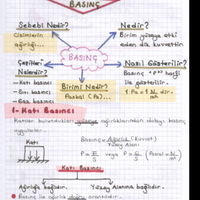 BASINÇ
Sebebi Nedir?
Cisimlerin
ağırlığı...
Nedir?
Birim yüzeye etki
eden dik kuvvettir
BASINÇ
Çeşitleri
Nelerdir?
-Katı basıncı
-Sıvı basıncı
-Gaz basıncı
Birimi Nedir?
Pascal (Pa)...
Nasıl Gösterilir?
Basınç "P" harfi
ile gösterilir.
1 Pa = 1 N/m²
1- Katı Basıncı
Katılar bulundukları yüzeye ağırlıklarından dolayı basınç
uygular.
Katı
Basınç = Ağırlık (Kuvvet)
Yüzey Alanı
P = G/S veya P = F/S (Pascal = N/m²)
Katı Basıncı
Ağırlığa bağlıdır.
Yüzey Alanına bağlıdır.